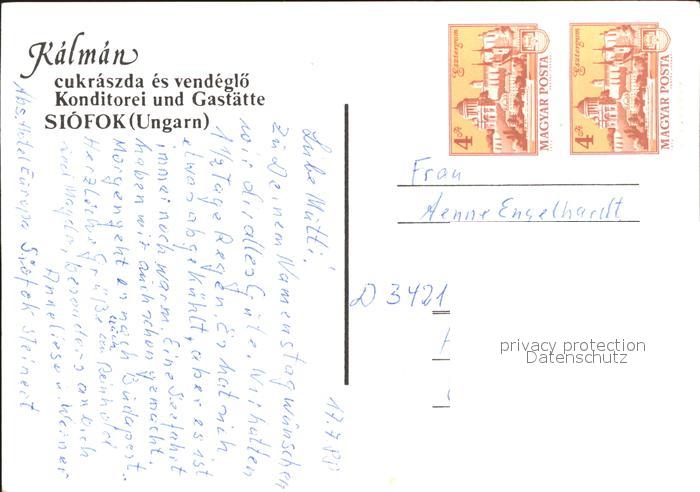 Kálmán
cukrászda és vendéglő
Konditorei und Gastätte
SIÓFOK (Ungarn)
Esztergom
4 Ft
MAGYAR POSTA
Esztergom
4 Ft
MAGYAR POSTA
17.7.88
Liebe Mutti!
Zu Deinem Namenstag wünschen
wir Dir alles Gute. Wir hatten
1 1/2 Tage Regen. Er hat sich
etwas abgekühlt, aber es ist
immer noch warm. Eine Seefahrt
haben wir auch schon gemacht.
Morgen geht es nach Budapest.
Herzliche Grüße auch an Reinhold
und Magda, besonders an Dich
Anneliese u. Werner
Abs. Hotel Europa Siófok Steinert
Frau
Aenne Engelhardt
D 3421
privacy protection
Datenschutz